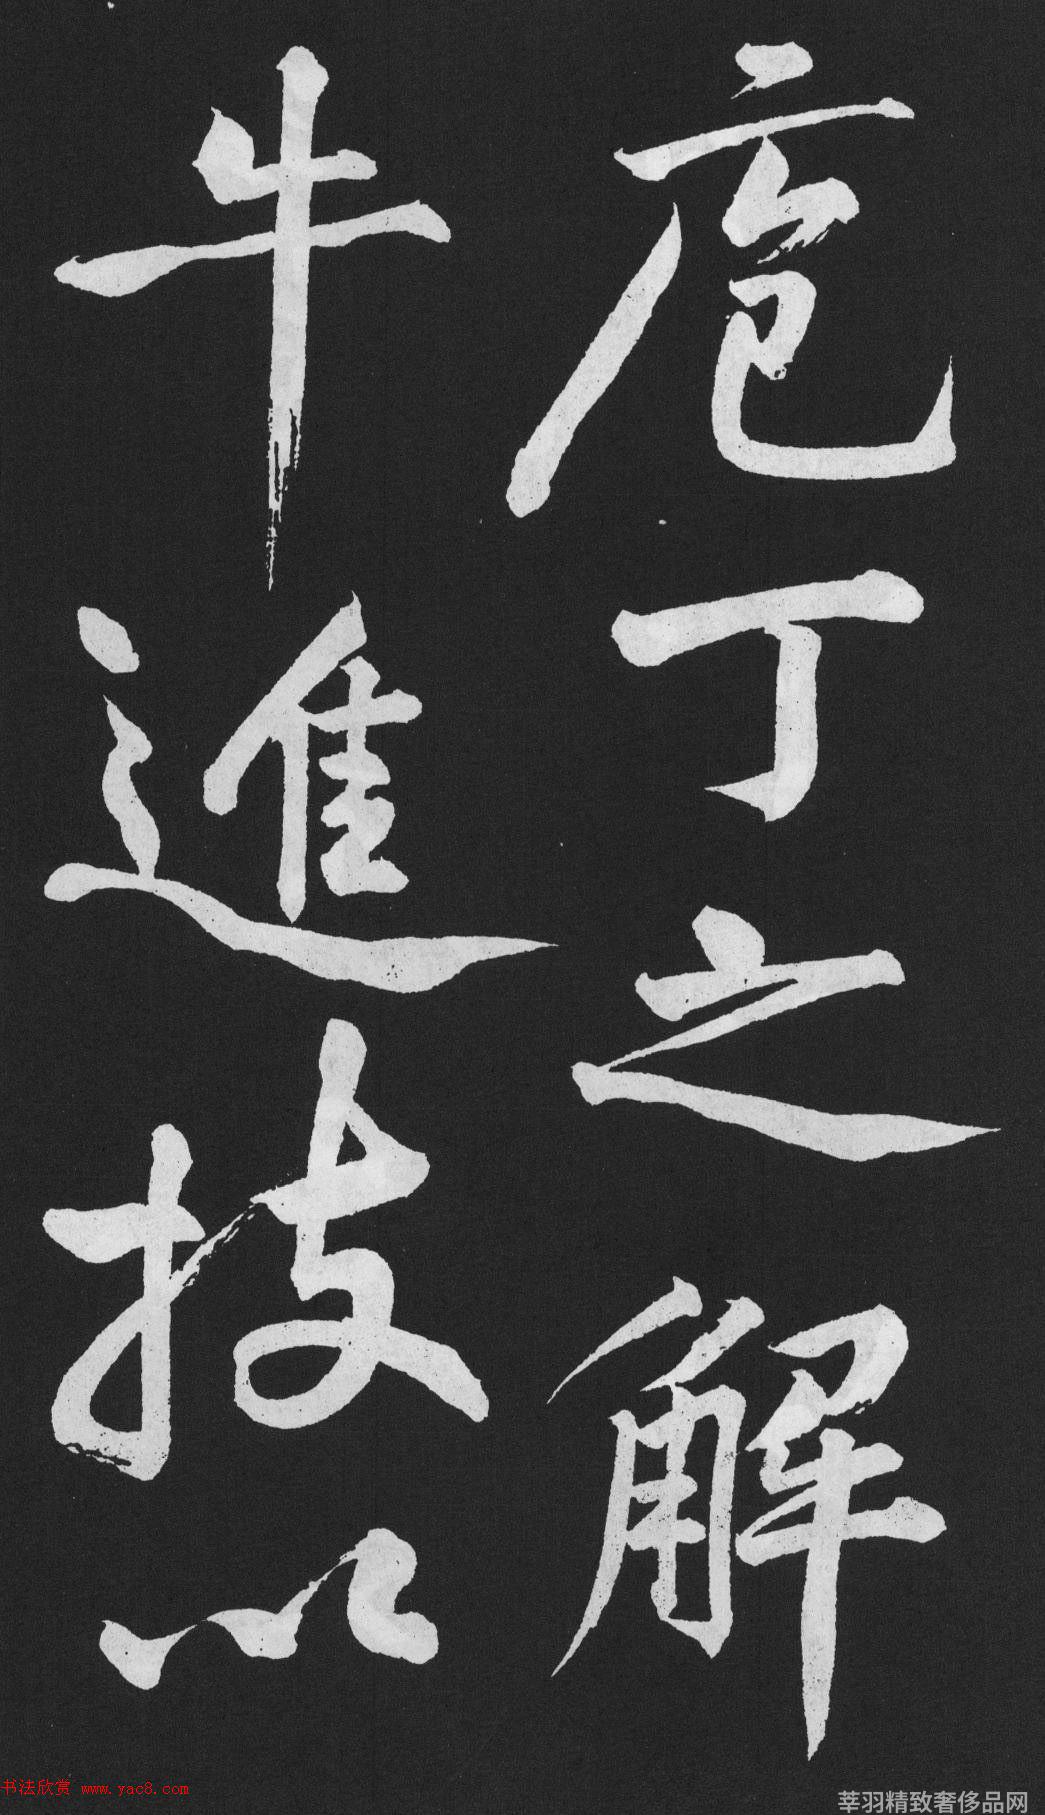 庖丁之解
牛進技以
书法欣赏 www.yac8.com
莘羽精致奢侈品网